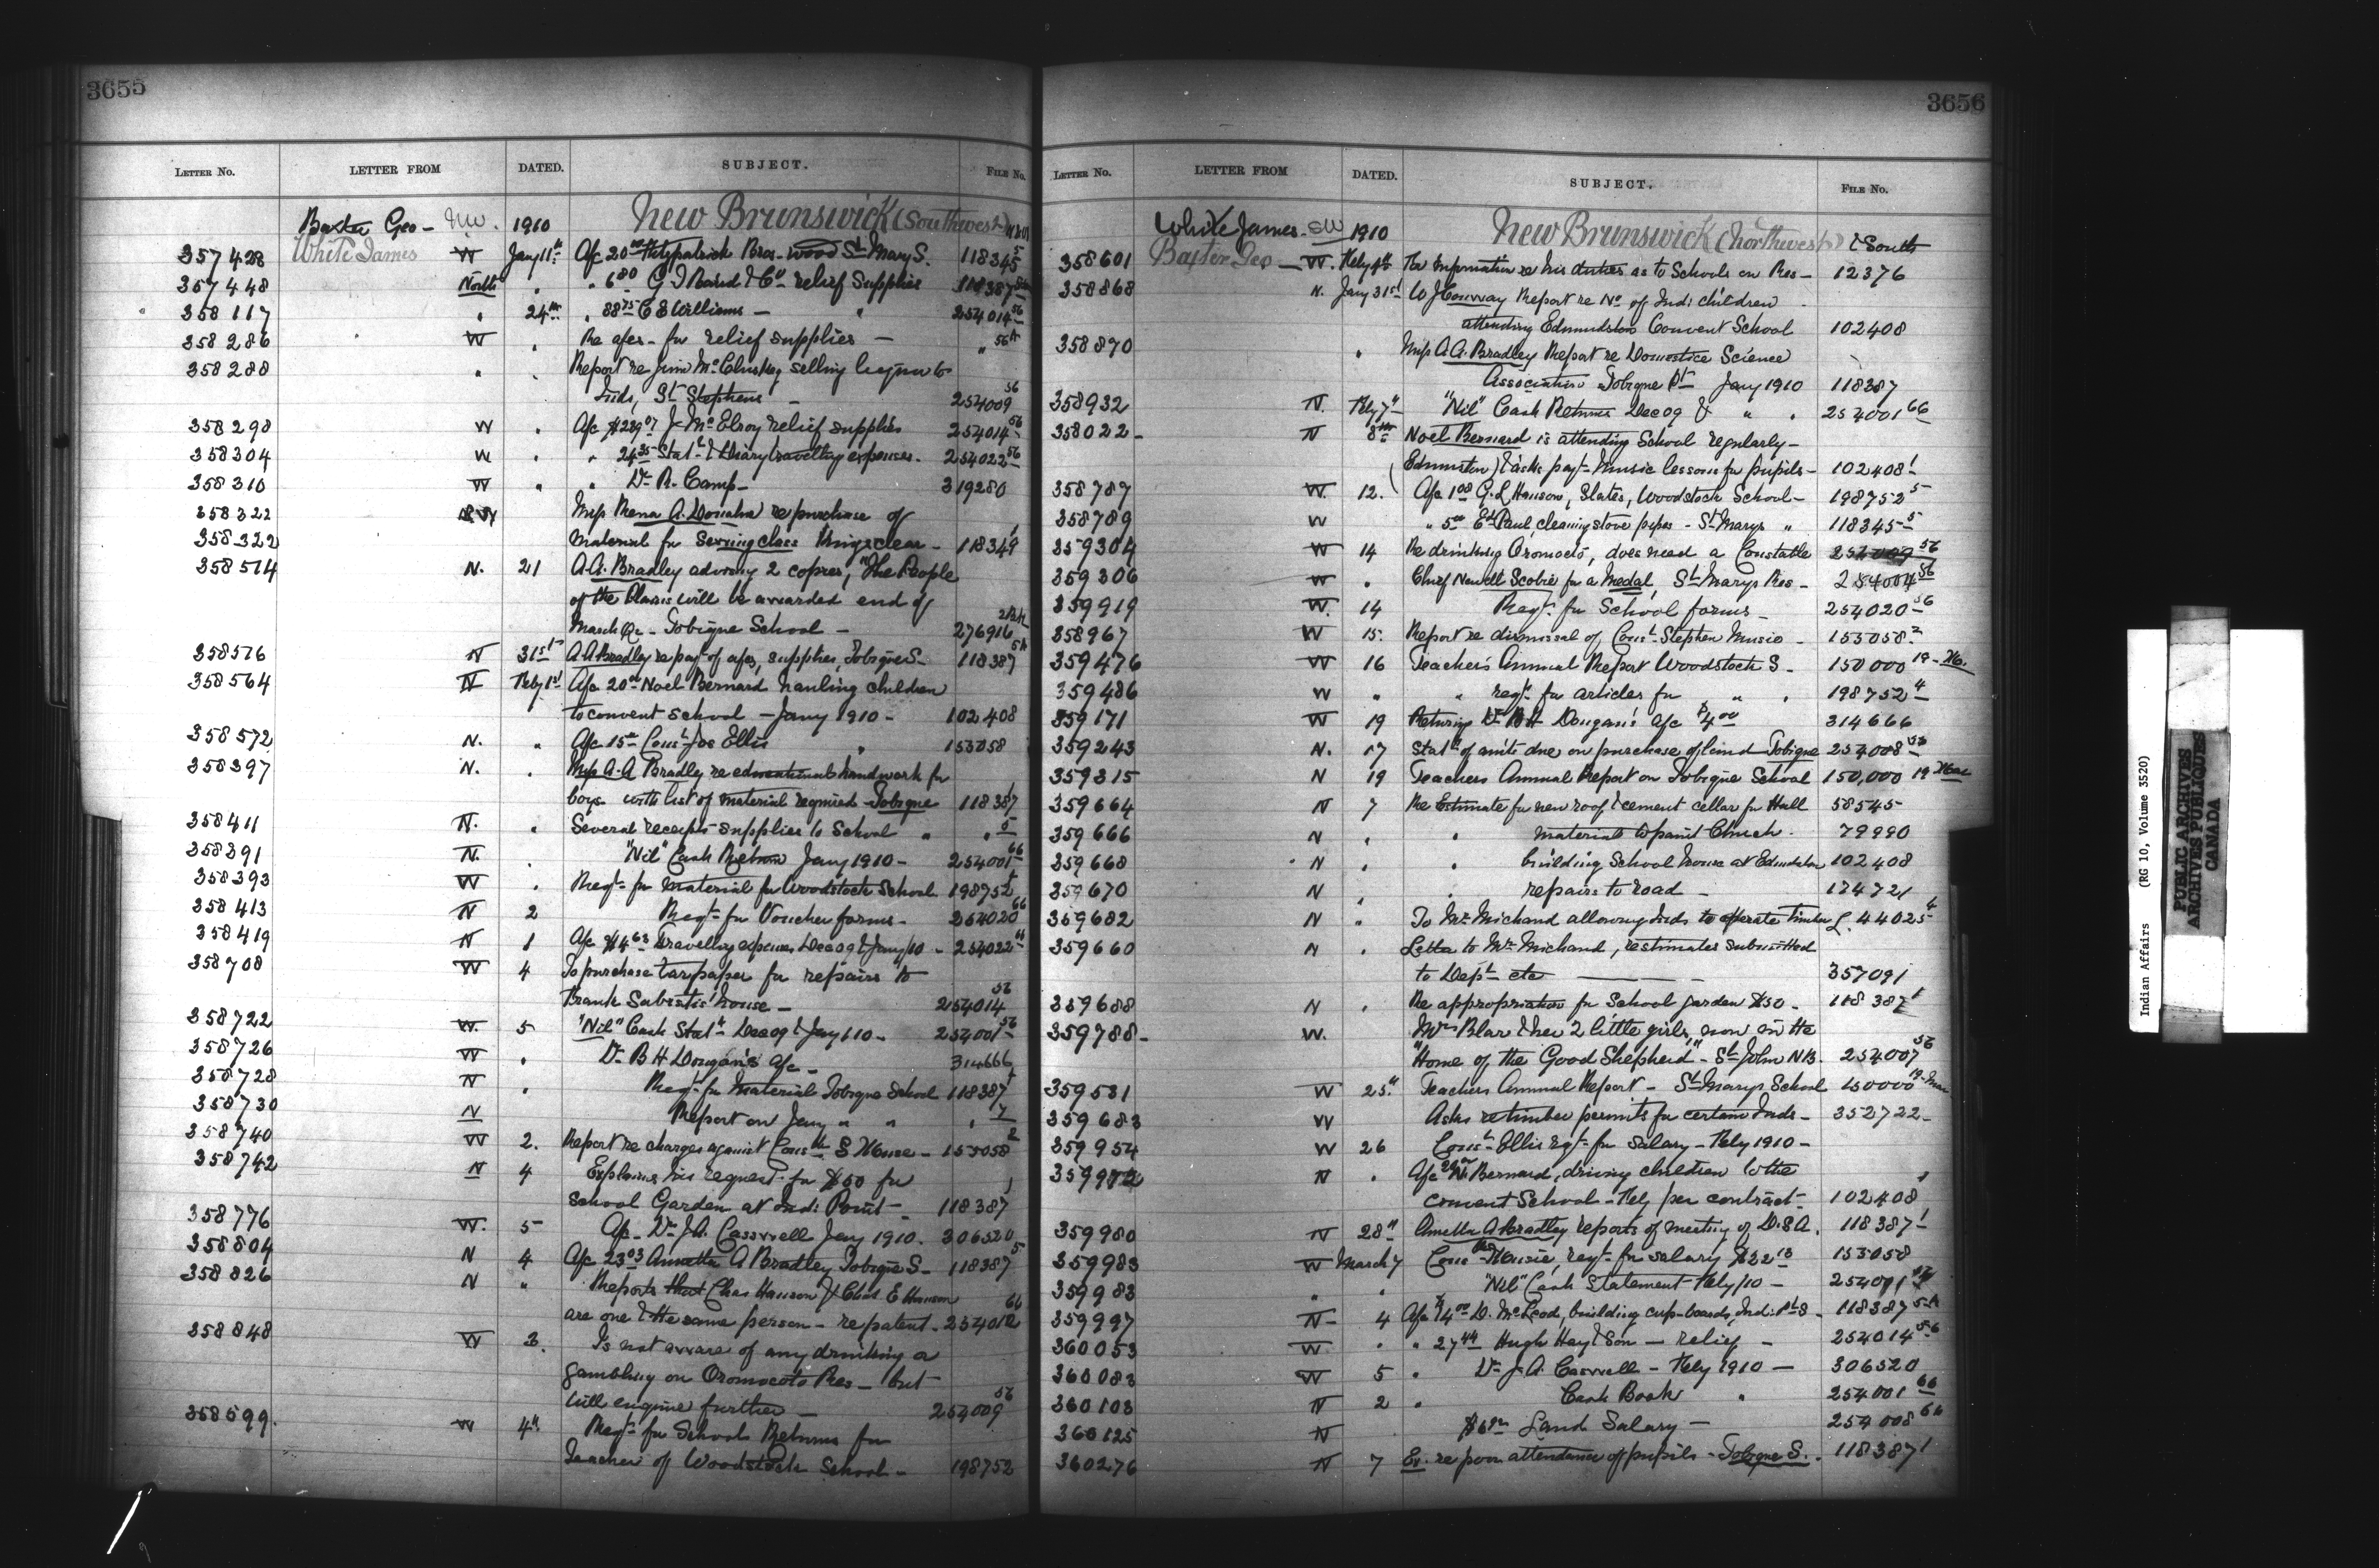 3655
LETTER NO. LETTER FROM DATED. SUBJECT. FILE NO.
Baxter Geo - NW. 1910 New Brunswick (Southwest)
357428 White James W Jany 11th A/c 20.00 Fitzpatrick Bros - wood St Mary S. 118345 5
357448 North " " 6.80 G T Baird & Co relief Supplies 118387
358117 " 24th " 88.75 C E Williams - " 254014 56
358286 W " Re a/cs - for relief supplies - " 56A
358288 " Report re Jim McCluskey selling liquor to
Inds, St Stephens - 254009 56
358298 W " A/c $239.07 J McElroy relief supplies 254014 56
358304 W " " 24.35 Stat & Diary travelling expenses. 254022 56
358310 W " " Dr R. Camp - 319280
358322 Miss Rena A. Donahu re purchase of
358322 material for Sewing class Kingsclear - 118349 1
358514 N. 21 A.A. Bradley advising 2 copies, "The People
of the Plains will be awarded end of
March Qr - Tobique School - 276916
358576 N 31st A A Bradley re payt of a/cs, supplies, Tobique S - 118387 5A
358564 N Feby 1st A/c 20.00 Noel Bernard hauling children
to convent school - Jany 1910 - 102408
358572 N. " A/c 15.00 Const Jos Ellis " 153058
358397 N. " Miss A-A Bradley re educational handwork for
boys with list of material required - Tobique 118387 1
358411 N. " Several receipts supplies to School " " 5
358391 N. " "Nil" Cash Return Jany 1910 - 254001 66
358393 W " Reqt for material for Woodstock School 198752
358413 N 2 Reqt for Voucher forms - 254020 66
358419 N 1 A/c $4.63 Travelling expenses Dec 09 & Jany/10 - 254022 66
358708 W 4 To purchase tarpaper for repairs to
Frank Sabattis' house - 254014 56
358722 W. 5 "Nil" Cash Statt Dec 09 & Jany 1.10 - 254001 56
358726 W " Dr B H Dougan's a/c - 314666
358728 N " Reqt for Material Tobique School 118387
358730 N Report on Jany " " " 7
358740 W 2. Report re charges against Const S House - 153058 2
358742 N 4 Explains his request for $50 for
School Garden at Ind: Point - 118387 1
358776 W. 5 A/c Dr J.A. Casswell Jany 1910. 306520
358804 N 4 A/c 23.03 Annetta A Bradley Tobique S - 118387 5
358826 N " Reports that Chas Hanson & Chas. E Hanson
are one & the same person - re patent. 254012 66
358848 W 3. Is not aware of any drinking or
gambling on Oromocoto Res - but
will enquire further - 254009 56
358599. W 4th Reqt for School Returns for
Teacher of Woodstock School - 198752
3656
LETTER NO. LETTER FROM DATED. SUBJECT. FILE NO.
White James - SW 1910 New Brunswick (Northwest) & South
358601 Baxter Geo - W. Feby 4th For Information re his duties as to Schools on Res - 12376
358868 N. Jany 31st W J Conway Report re No of Ind: children
attending Edmundston Convent School 102408
358870 " Miss A.A. Bradley Report re Domestice Science
Association Tobique Pt Jany 1910 118387
358932 N. Feby 7th "Nil" Cash Returns Dec 09 & " " 254001 66
358022 - N 8th Noel Bernard is attending School regularly -
Edmunston) & asks payt - Music lessons for pupils - 102408 1
358787 W. 12. A/c 1.08 G.L Hanson, Slates, Woodstock School - 198752 5
358789 W " 5.00 Ed Paul, cleaning stove pipes - St Marys " 118345 5
359304 W 14 Re drinking Oromocto, does need a Constable 254009 56
359306 W " Chief Newell Scobie for a Medal, St Marys Res - 254004 56
359919 W. 14 Reqt for School forms - 254020 56
358967 W 15. Report re dismissal of Const Stephen Musio - 153058 2
359476 W 16 Teacher's Annual Report Woodstock S - 150000 19 -
359486 W " " reqt for articles for " " 198752 4
359171 W 19 Returning Dr B H Dougan's a/c $4.00 314666
359243 N. 17 Statt of amts due on purchase of land Tobique 254008
359315 N 19 Teachers Annual Report on Tobique School 150,000 19
359664 N 7 Re Estimate for new roof & cement cellar for Hall 58545
359666 N " " material to paint Church. 79990
359668 N " " building School house at Edmunston 102408
359670 N " " repairs to road - 174721
359682 N " To Mr Michaud allowing Inds to operate timber L. 44025 4
359660 N " Letter to Mr Michaud, re estimates submitted
to Dept etc - 357091
359688 N " Re appropriation for School garden $50 - 118387 1
359788 - W. Mrs Blar & her 2 little girls, now in the
"Home of the Good Shepherd" - St John NB. 254007 56
359531 W 25th Teachers Annual Report - St Marys School 150000 19
359683 W Asks re timber permits for certain Inds - 352722 -
359954 W 26 Const Ellis reqt for Salary - Feby 1910 -
359972 N " A/c N. Bernard, driving children to the
convent School - Feby per contract - 102408 1
359980 N 28th Annetta A Bradley reports of meeting of D.S.A. 118387 1
359983 W March 7 Const Musie, reqt for salary $22.13 153058
359983 " " "Nil" Cash Statement - Feby/10 - 254001
359997 N - 4 A/c $4.00 D. McLeod, building cup-boards, Ind: Pt S - 118387 5A
360053 W " " 27.44 Hugh Hay & Son - relief - 254014 56
360083 W 5 " Dr J.A. Casswell - Feby 1910 - 306520
360108 N 2 " Cash Book " 254001 66
360125 N Land Salary - 254008 66
360276 N 7 Ex. re poor attendance of pupils - Tobique S. - 118387 1
Indian Affairs (RG 10, Volume 3520)
PUBLIC ARCHIVES
ARCHIVES PUBLIQUES
CANADA